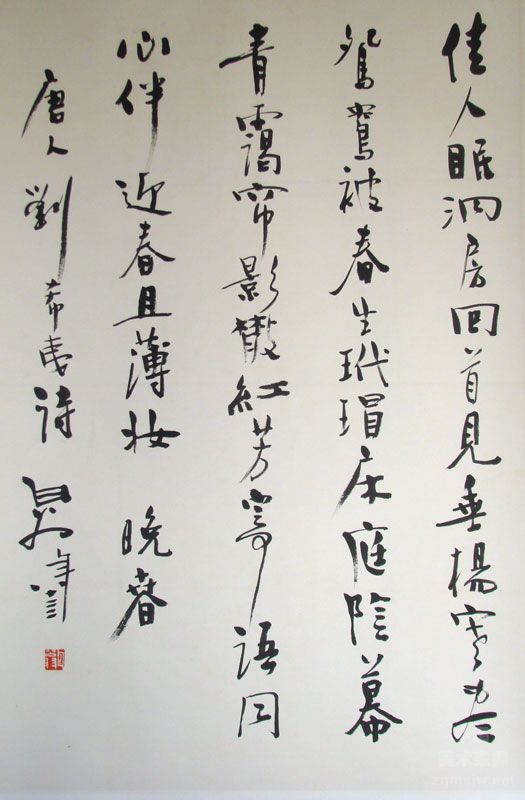 佳人眠洞房回首見垂楊寒尽
鴛鴦被春生玳瑁床庭陰幕
青靄帘影散紅芳寄語同
心伴迎春且薄妝 晚春
唐人劉希夷詩